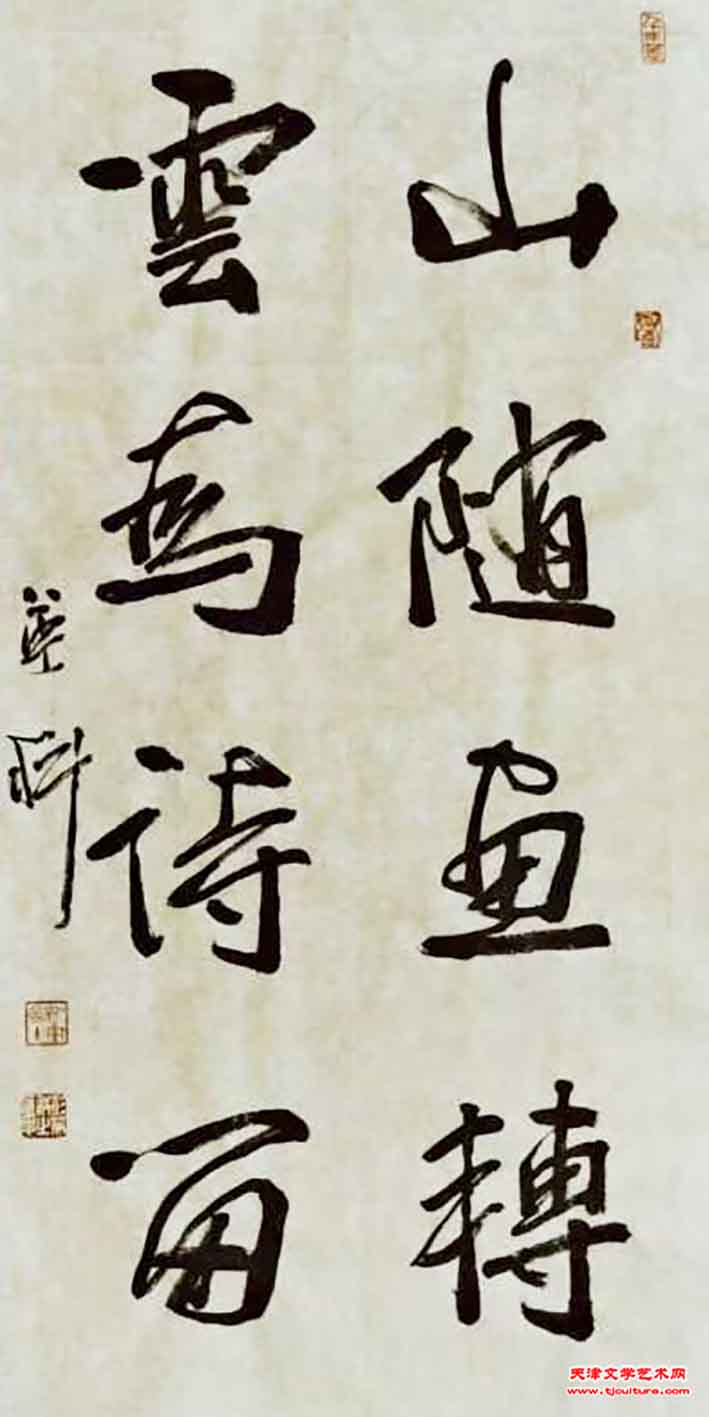 山随畫轉
雲為詩留
天津文学艺术网
www.tjculture.com